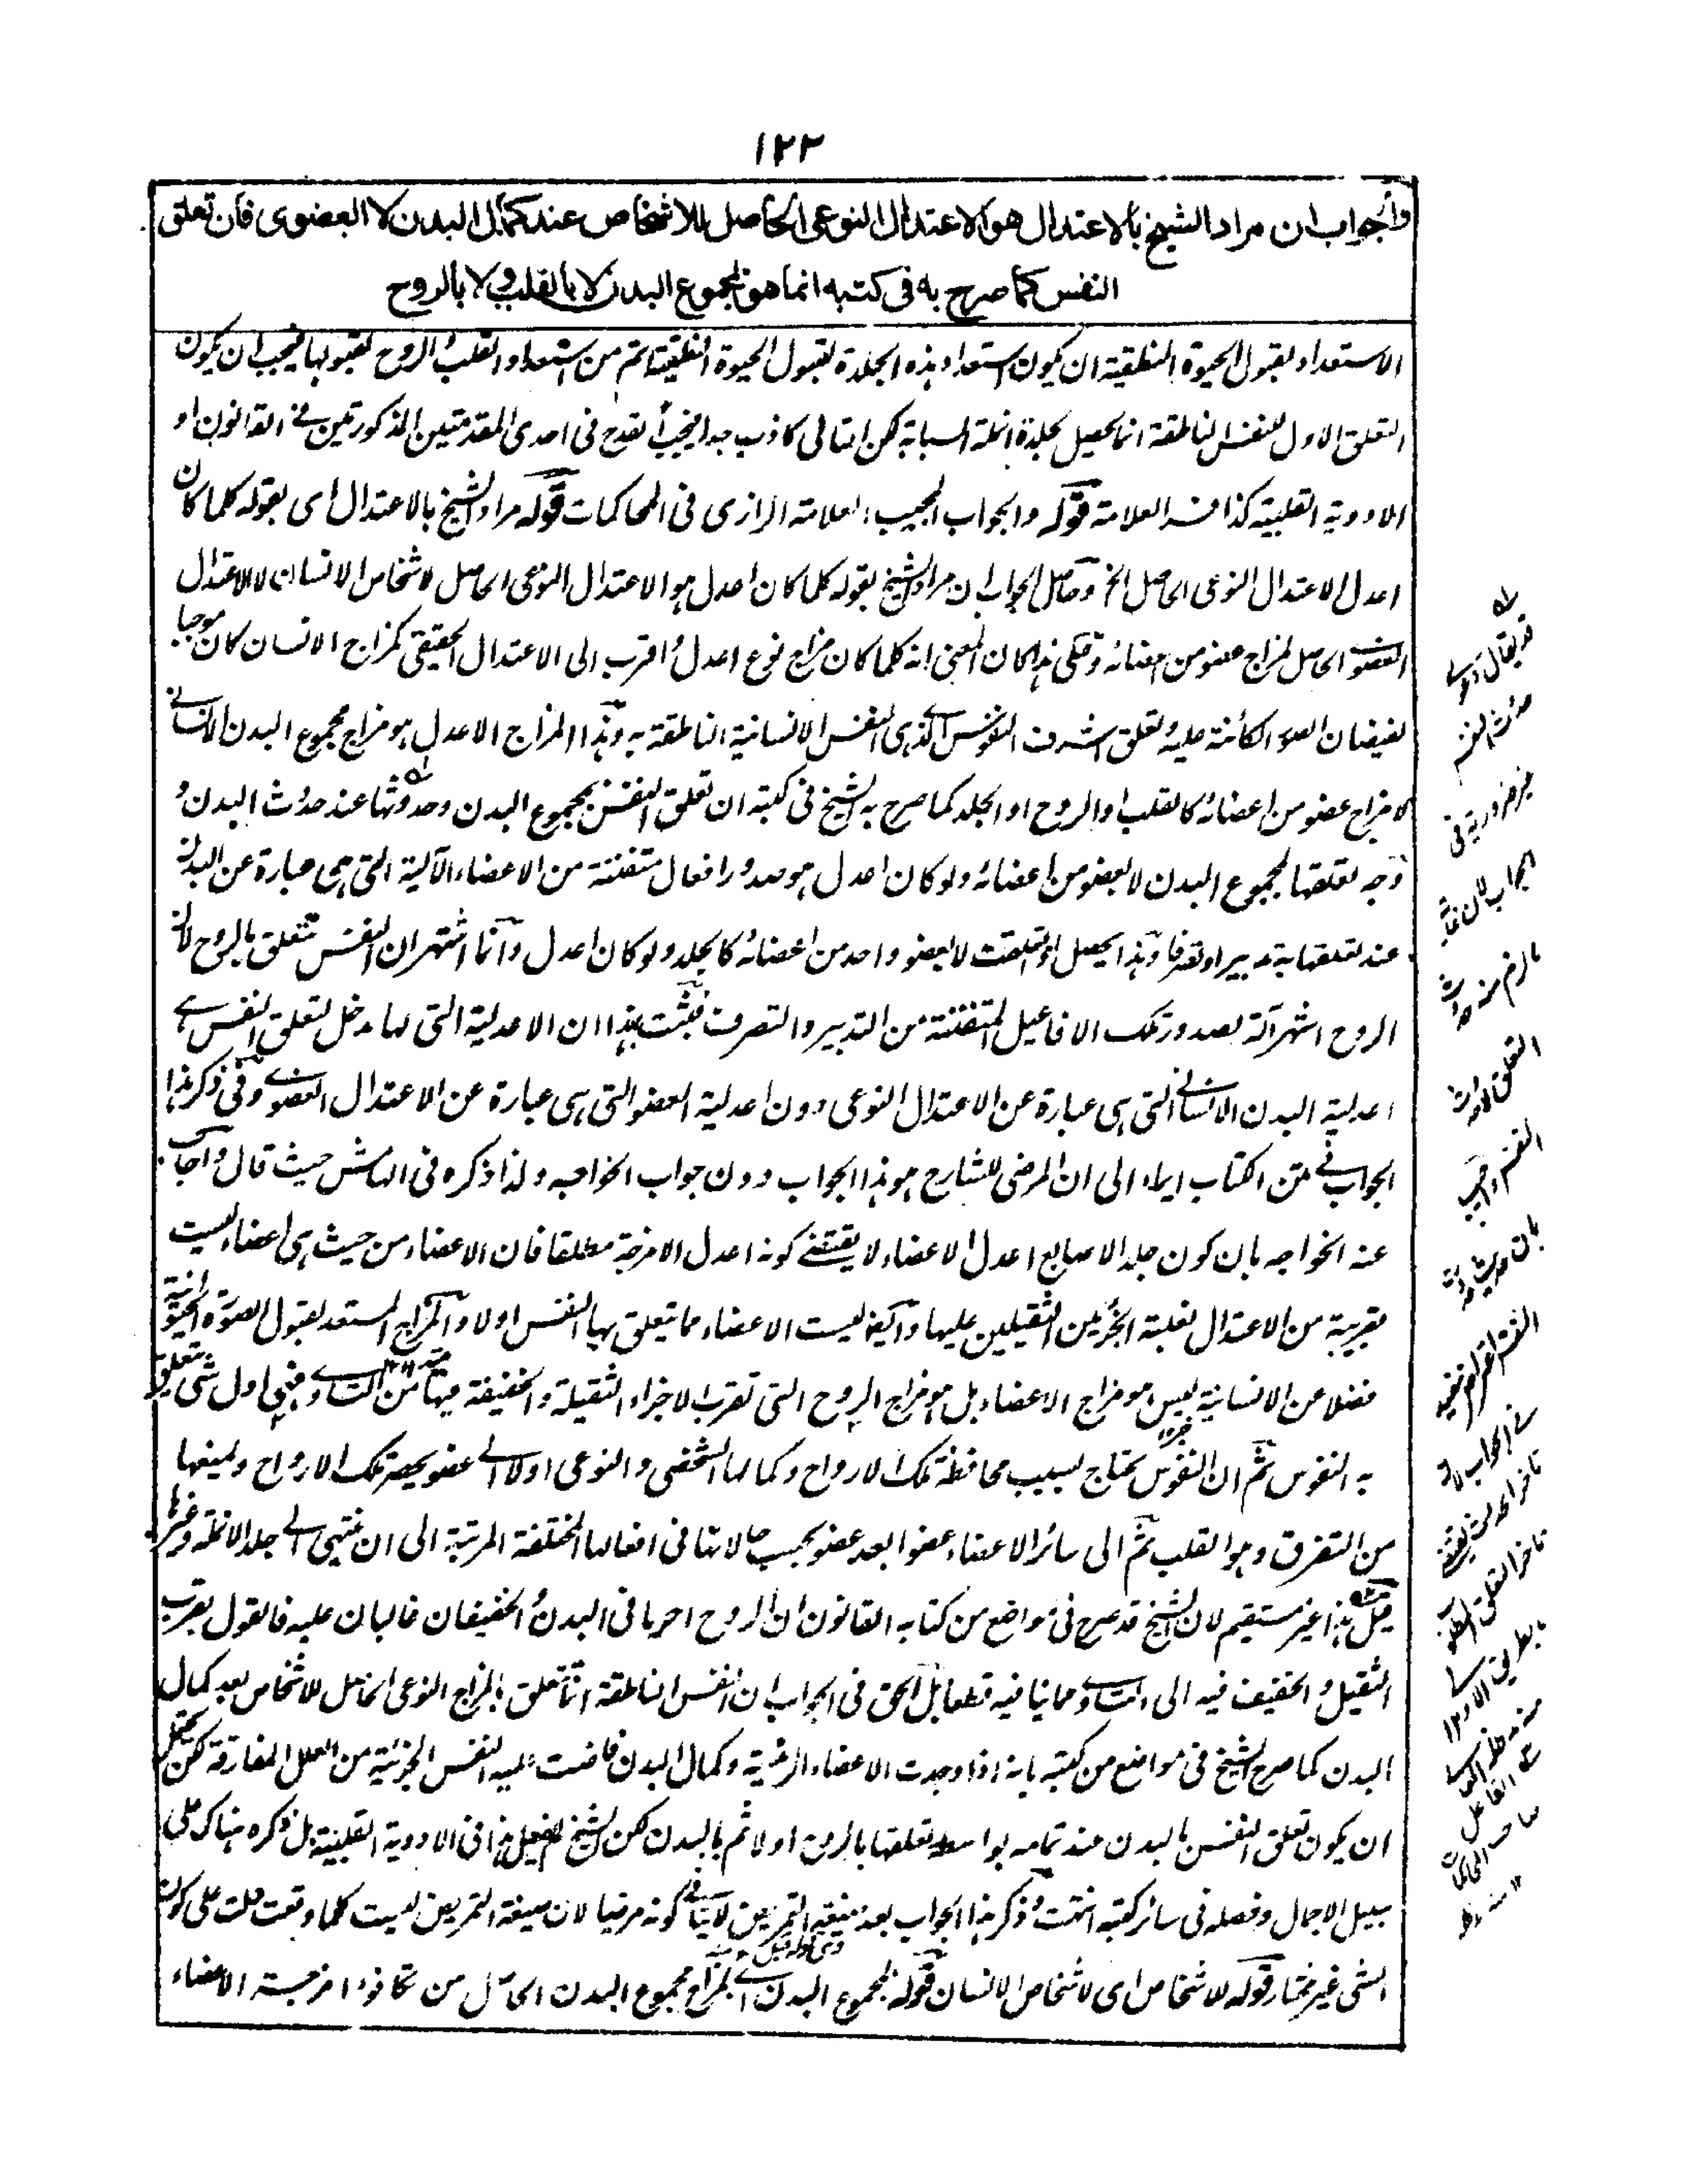 ١٢٣
والجواب ان مراد الشيخ بالاعتدال هو الاعتدال النوعى الحاصل للاشخاص عند كمال البدن لا العضوى فان تعلق
النفس كما صرح به فى كتبه انما هو بمجموع البدن لا بالقلب ولا بالروح
الاستعداد لقبول الحيوة النطقية ان يكون استعداد هذه الجلدة لقبول الحيوة النطقية اتم من استعداد القلب والروح لقبولها فيجب ان يكون
التعلق الاول للنفس الناطقة انما يحصل بجلدة انملة السبابة لكن التالى كاذب جدا فيجب القدح فى احدى المقدمتين المذكورتين فى القانون او
الادوية القلبية كذا العلامة قوله والجواب المجيب العلامة الرازى فى المحاكمات قوله مراد الشيخ بالاعتدال اى بقوله كلما كان
اعدل الاعتدال النوعى الحاصل الخ وحاصل الجواب ان مراد الشيخ بقوله كلما كان اعدل هو الاعتدال النوعى الحاصل لاشخاص الانسان لا الاعتدال
العضوى الحاصل لمزاج عضو من اعضائه وعلى هذا كان المعنى انه كلما كان مزاج نوع اعدل واقرب الى الاعتدال الحقيقى كمزاج الانسان كان موجبا
لفيضان الصورة الكائنة عليه ولتعلق اشرف النفوس الذى هى النفس الانسانية الناطقة به وهذا المزاج الاعدل هو مزاج مجموع البدن الانسانى
لا مزاج عضو من اعضائه كالقلب او الروح او الجلد كما صرح به الشيخ فى كتبه ان تعلق النفس بمجموع البدن وحدوثها عند حدوث البدن و
وجه تعلقها بمجموع البدن لا بعضو من اعضائه ولو كان اعدل هو صدور افعال متفننة من الاعضاء الآلية التى هى عبارة عن البدن
عند تعلقها به تدبيرا وتصرفا وهذا يحصل لو تعلقت لا بعضو واحد من اعضائه كالجلد ولو كان اعدل وانما اشتهر ان النفس تتعلق بالروح لان
الروح اشهر آلة لصدور تلك الافاعيل المتفننة من التدبير والتصرف فثبت بهذا ان الاعدلية التى لها دخل لتعلق النفس هى
اعدلية البدن الانسانى التى هى عبارة عن الاعتدال النوعى دون اعدلية العضو التى هى عبارة عن الاعتدال العضوى وفى ذكر هذا
الجواب فى متن الكتاب ايماء الى ان المرضى للشارح هو هذا الجواب دون جواب الخواجه ولذا ذكره فى الهامش حيث قال واجاب
عنه الخواجه بان كون جلد الاصابع اعدل الاعضاء لا يقتضى كونه اعدل الامزجة مطلقا فان الاعضاء من حيث هى اعضاء ليست
بقريبة من الاعتدال لغلبة الجزئين الثقيلين عليها وايضا ليست الاعضاء مما يتعلق بها النفس اولا والمزاج المستعد لقبول الصورة الحيوانية
فضلا عن الانسانية ليس هو مزاج الاعضاء بل هو مزاج الروح التى تقرب الاجزاء الثقيلة والخفيفة فيها من التساوى فهى اول شى تتعلق
به النفوس ثم ان النفوس تحتاج بسبب محافظة تلك الارواح وكمالها الشخصى والنوعى اولا الى عضو يحصر تلك الارواح ويمنعها
من التفرق وهو القلب ثم الى سائر الاعضاء عضوا بعد عضو بحسب حالاتها فى افعالها المختلفة المرتبة الى ان ينتهى الى جلد الانملة وغيرها
قيل هذا غير مستقيم لان الشيخ قد صرح فى مواضع من كتابه القانون ان الروح احر ما فى البدن والخفيفان غالبان عليه فالقول بقرب
الثقيل والخفيف فيه الى التساوى مما ينافيه قطعا بل الحق فى الجواب ان النفس الناطقة انما تتعلق بالمزاج النوعى الحاصل للاشخاص بعد كمال
البدن كما صرح الشيخ فى مواضع من كتبه بانه اذا وجدت الاعضاء الرئية وكمال البدن فاضت اليه النفس الجزئية من العلل المفارقة لكن يحتمل
ان يكون تعلق النفس بالبدن عند تمامه بواسطة تعلقها بالروح اولا ثم بالبدن لكن الشيخ لم يفصل هذا فى الادوية القلبية بل ذكره هناك على
سبيل الاجمال وفصله فى سائر كتبه انتهت وذكر هذا الجواب بعد صيغة التمريض لا ينافى كونه مرضيا لان صيغة التمريض ليست كلما وقعت دلت على كون
الشى غير مختار قوله للاشخاص اى لاشخاص الانسان قوله بمجموع البدن اى لمزاج مجموع البدن الحاصل من تكافؤ امزجة الاعضاء